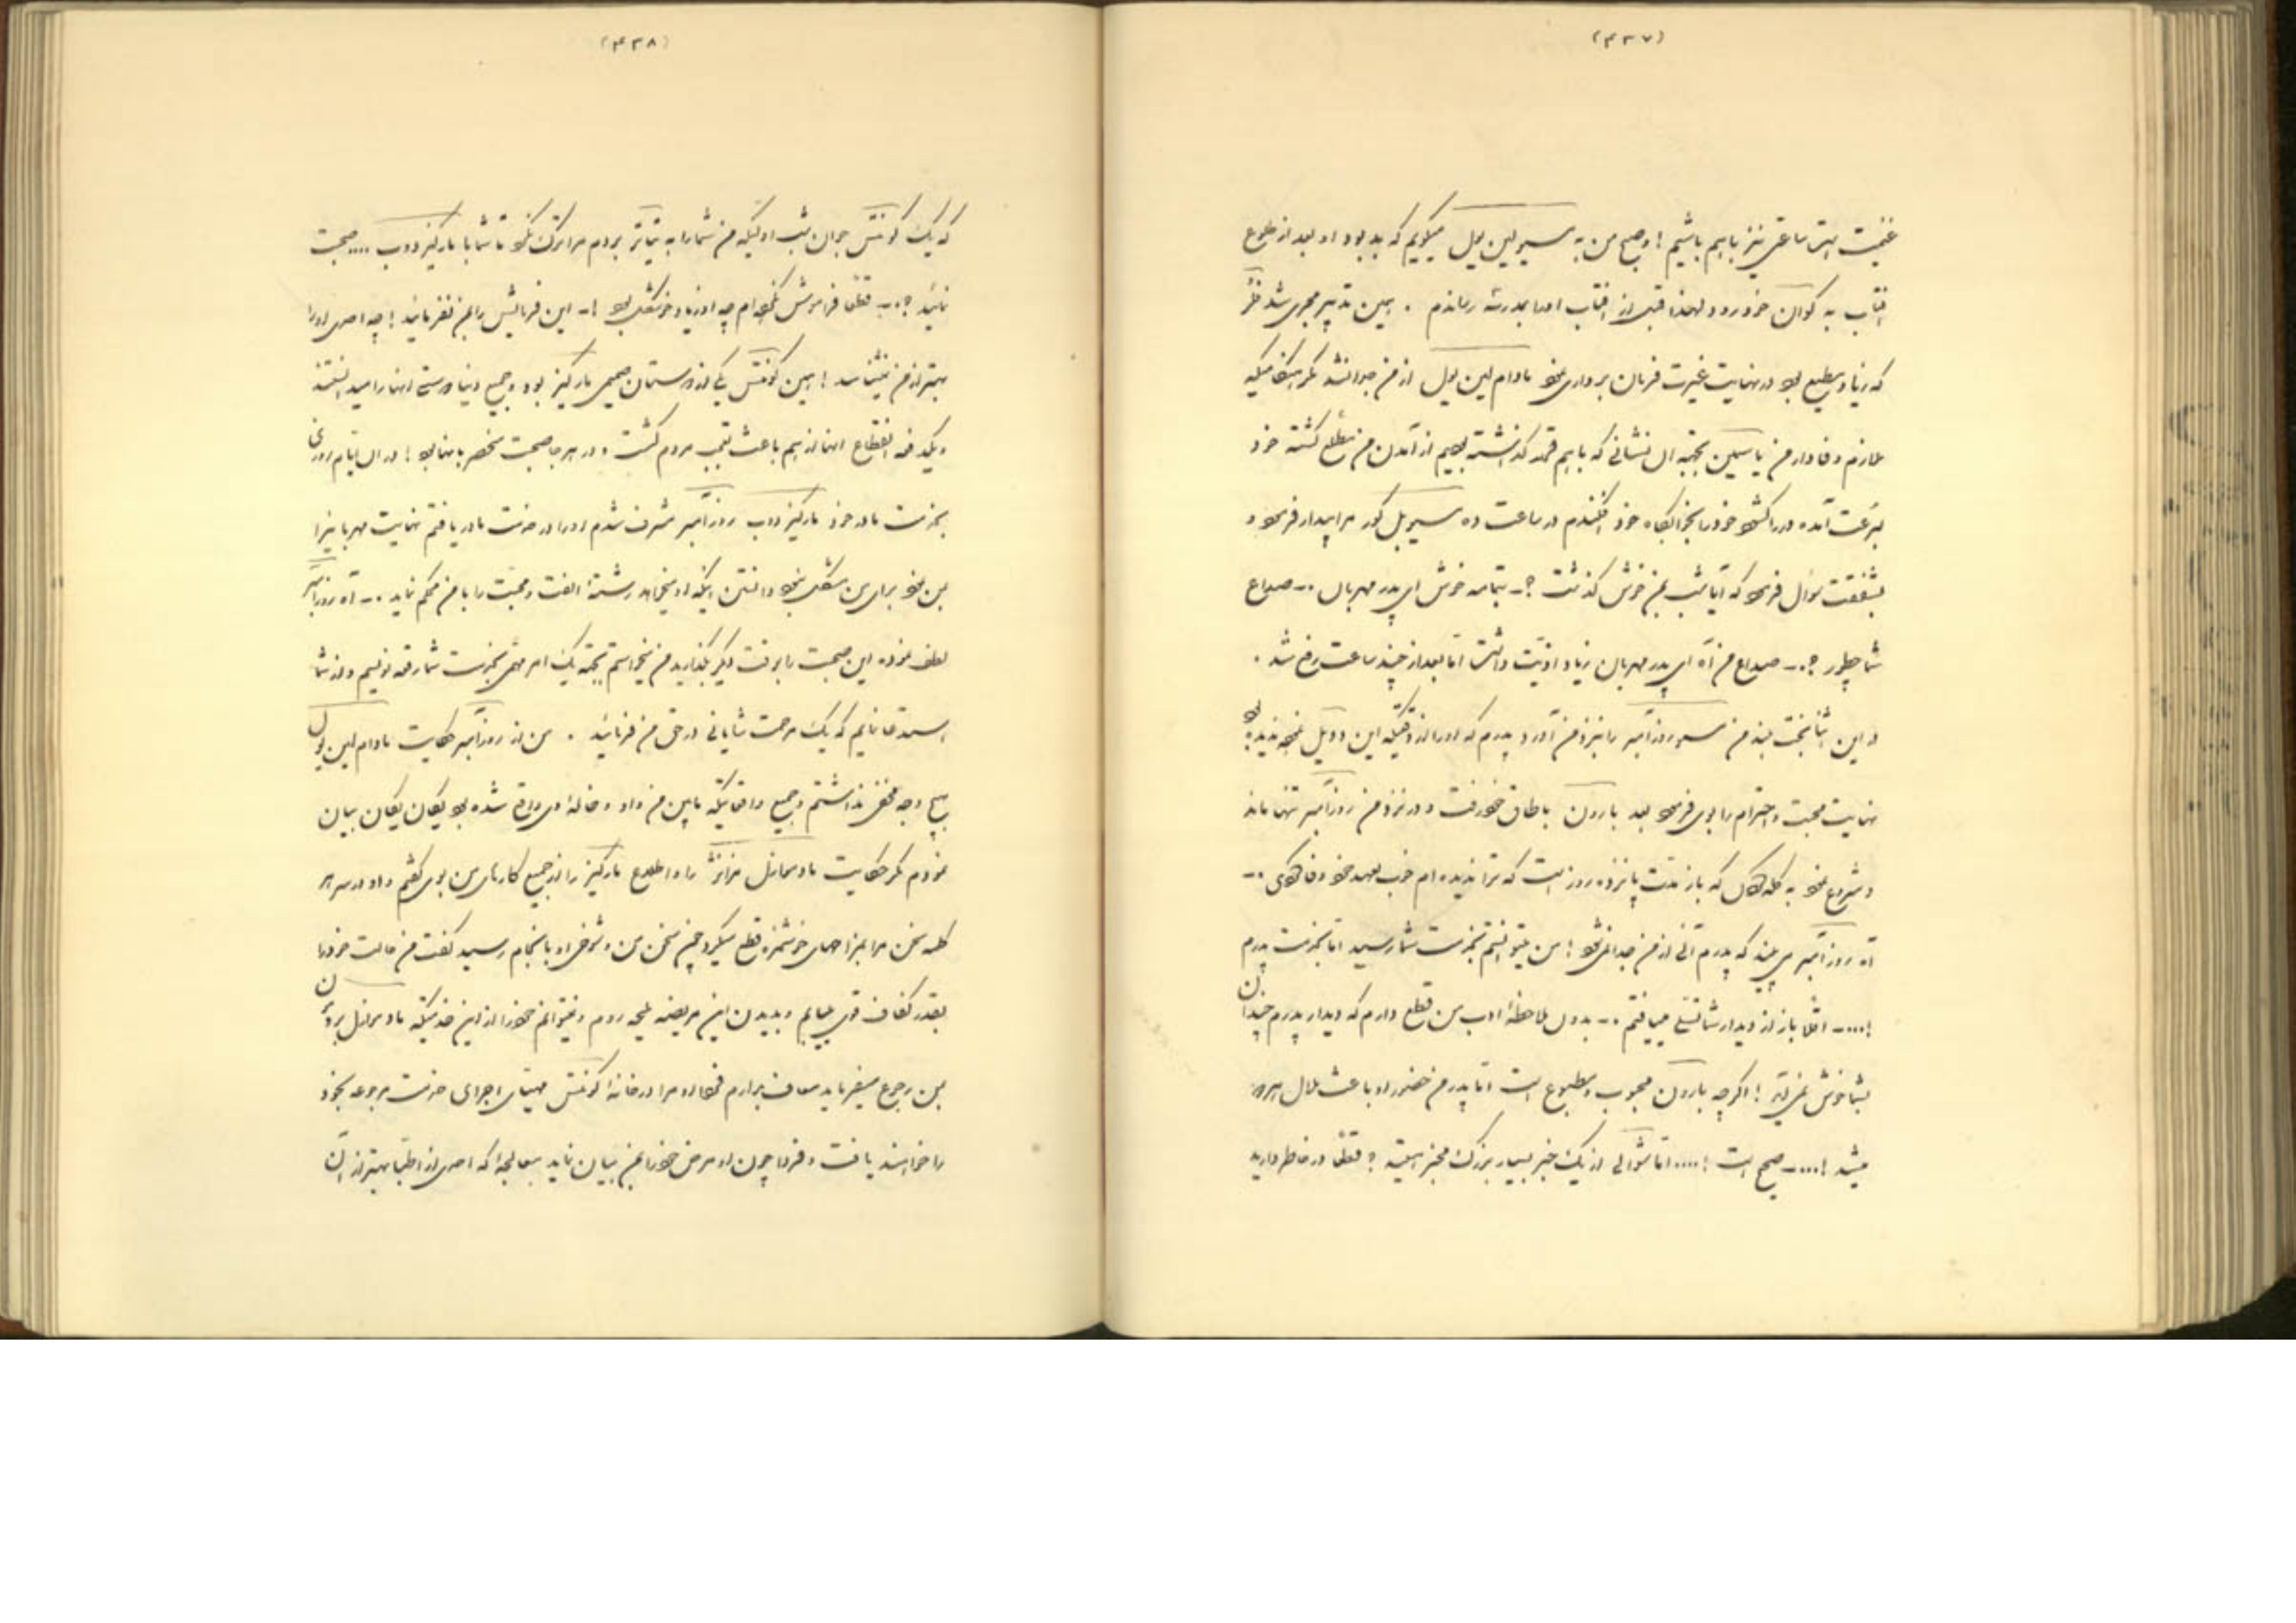 (۴۳۷)
غنیمت است ساعتی نیز با هم باشیم ! وصبح من به مسیو لین پول میگویم که بد بود او بعد از طلوع
افتاب به کوان خود رود لهذا قبل از افتاب اورا بمدرسه رساندم . همین تدبیر مجری شد
که زیاد مطیع بود در نهایت غیرت فرمان برداری نمود مادام لین پول از من جدا نشد مگر هنگامیکه
ملازم وفادار من یاسمین بجهة ان نشانی که با هم قرار گذاشته بودیم از آمدن من مطلع گشته خود
بسرعت آمده در را کشود خود را بخوابکاه خود افکندم در ساعت ده مسیو بل کور مرا بیدار فرمود و
بشفقت سؤال فرمود که آیا شب بمن خوش گذشت ؟ ــ بتمامه خوش ای پدر مهربان ــ صداع
شما چطور ؟ ــ صداع من آه ای پدر مهربان زیاد اذیت داشت اما بعد از چند ساعت رفع شد .
در این اثنا من مسیو روزآمبر را نزد من آورد پدرم که اورا از وقتیکه این دوئل ندیده بود
نهایت محبت و احترام را بوی فرمود بعد بارون باطاق خود رفت و در نزد من روزآمبر تنها ماند
و شروع نمود به کله که باز مدت پانزده روز است که ترا ندیده ام خوب بعهد خود وفا کردی ــ
آه روزآمبر می بیند که پدرم آنی از من جدا نمیشود ! من میتوانستم بخدمت شما رسید اما بخدمت پدرم
! .... ــ اقلا باز از دیدار شما تسلی مییافتم ــ بدون ملاحظهٔ ادب من قطع دارم که دیدار پدرم چندان
بشما خوش نمی آید ! اگر چه بارون محبوب و مطبوع است اما پدر من حضور او باعث ملال
میشد ! .... ــ صحیح است ! .... اما شوالی از یک خبر بسیار بزرگ مخبر هستید ؟ قطعا در خاطر دارید
(۴۳۸)
که یک کونتس جوان شب اولیکه من شما را به تیاتر بردم مرا ترک نکرد تا شما با مارکیز دوب .... صحبت
نمائید ؟ ــ قطعا فراموش نکرده ام چه او زیاد خوشگل بود ! ــ این فرمایش را بمن نفرمائید ! چه احدی اورا
بهتر از من نمیشناسد ! این کونتس یکی از دوستان صمیمی مارکیز بود و جمیع دنیا دوستی انها را میدانستند
و یکدفعه انقطاع انها از هم باعث تعجب مردم گشت و در هر جا صحبت منحصر بانها بود ! در ان ایام روزی
بخدمت مادر خود مارکیز دوب روزآمبر مشرف شدم اورا در خدمت مادر یافتم نهایت مهربانیرا
بمن نمود برای من مشکل نبود دانستن اینکه او میخواهد رشتهٔ الفت و محبت را با من محکم نماید ــ آه روزآمبر
لطف نموده این صحبت را بوقت دیگر بگذارید من میخواستم بجهة یک امر مهمی بخدمت شما رقعه نویسم و از شما
استدعا نمایم که یک مرحمت شایانی در حق من فرمائید . من از روزآمبر حکایت مادام لین پول
بهیچ وجه مخفی نداشتم و جمیع وقایعیکه مابین من و او و خانهٔ وی واقع شده بود یکان یکان بیان
نمودم مگر حکایت مادموازل را و اطلاع مارکیز را از جمیع کارهای من بوی گفتم و او در سر هر
کلمه سخن مرا بمزاحهای خوشمزه قطع میکرد چون سخن من و شوخی او بانجام رسید گفت من حالت خود را
بقدر کفاف قوی مییابم و بدیدن این مریضه علیحده روم و نمیتوانم خود را از این خدمتیکه
بمن رجوع میفرماید معاف بدارم فردا مرا در خانهٔ کونتس مهیای اجرای خدمت مرجوعه بخود
را خواهند یافت و فردا چون او مرض خود را بمن بیان نماید بمعالجهٔ که احدی از اطبا بهتر از ان